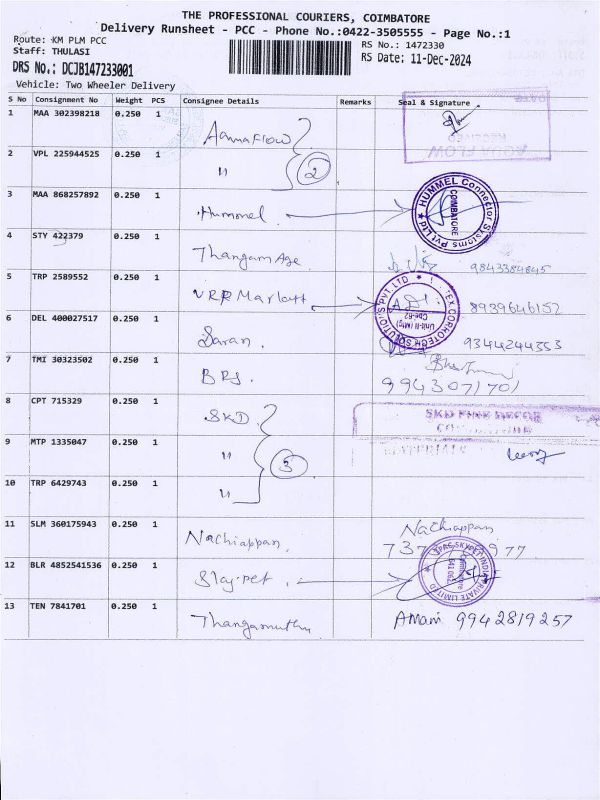 THE PROFESSIONAL COURIERS, COIMBATORE
Delivery Runsheet - PCC - Phone No.:0422-3505555 - Page No.:1
Route: KM PLM PCC RS No.: 1472330
Staff: THULASI RS Date: 11-Dec-2024
DRS No.: DCJB147233001
Vehicle: Two Wheeler Delivery
S No Consignment No Weight PCS Consignee Details Remarks Seal & Signature
1 MAA 302398218 0.250 1
AQUA FLOW
2 VPL 225944525 0.250 1 " 2
3 MAA 868257892 0.250 1 Hummel HUMMEL Connector Systems Pvt Ltd COIMBATORE
4 STY 422379 0.250 1 Thangam Age 9843384845
5 TRP 2589552 0.250 1 VRR 8939646152
Unit-II (Mfg) Cbe-62
6 DEL 400027517 0.250 1 Saran. 9344244353
7 TMI 30323502 0.250 1 BRS. 9943071701
8 CPT 715329 0.250 1 SKD SKD FINE DECOR
9 MTP 1335047 0.250 1 " 3 MATERIALS
10 TRP 6429743 0.250 1 "
11 SLM 360175943 0.250 1 Nachiappan. Nachiappan
737 977
12 BLR 4852541536 0.250 1 PRIVATE LIMITED
13 TEN 7841701 0.250 1 Thangamuthu 9942819257